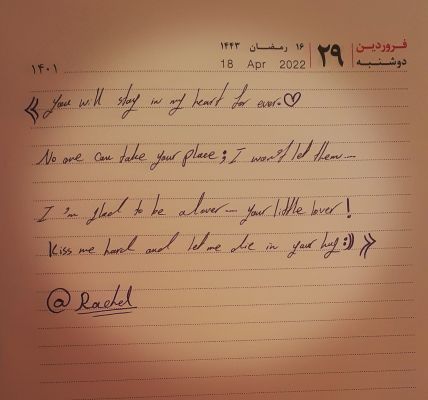 ۱۶ رمضان ۱۴۴۳ ۲۹ فروردین
۱۴۰۱ 18 Apr 2022 دوشنبه
« You will stay in my heart for ever.♡
No one can take your place; I won't let them...
I'm glad to be a lover — your little lover!
Kiss me hard and let me die in your hug :)) »
@ Rachel